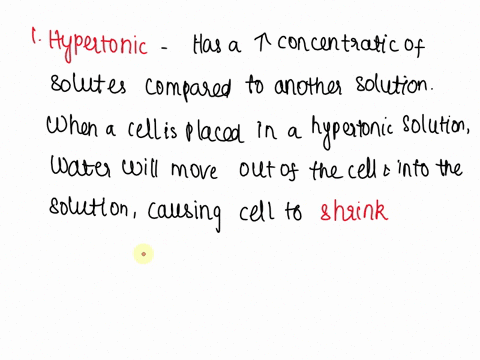 1. Hypertonic - Has a ↑ concentratic of
solutes compared to another solution.
When a cell is placed in a hypertonic solution,
water will move out of the cell & into the
solution, causing cell to shrink